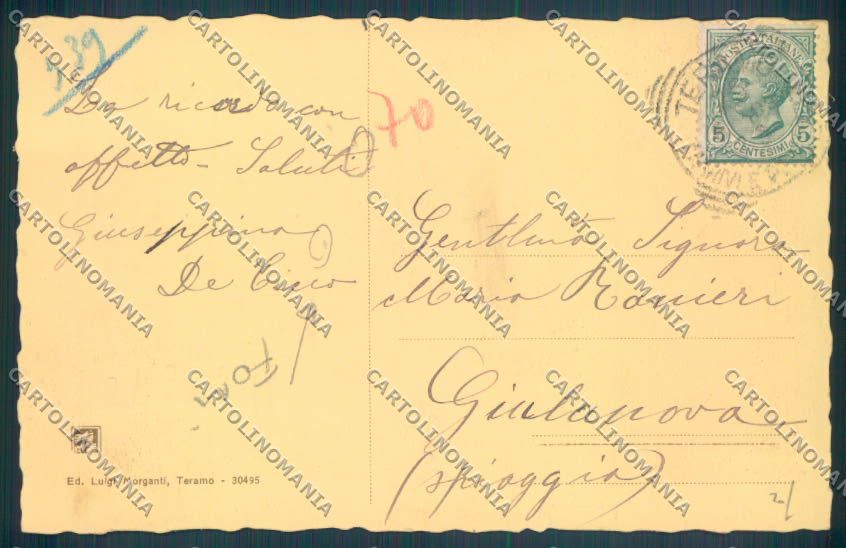 539
La ricordo con
affetto - Saluti
Giuseppina
De
70
70
POSTE ITALIANE
5 CENTESIMI 5
TERAMO
Gentlma Signora
Maria Ranieri
Giulianova
(spiaggia)
Ed. Luigi Morganti, Teramo - 30495
CARTOLINOMANIA